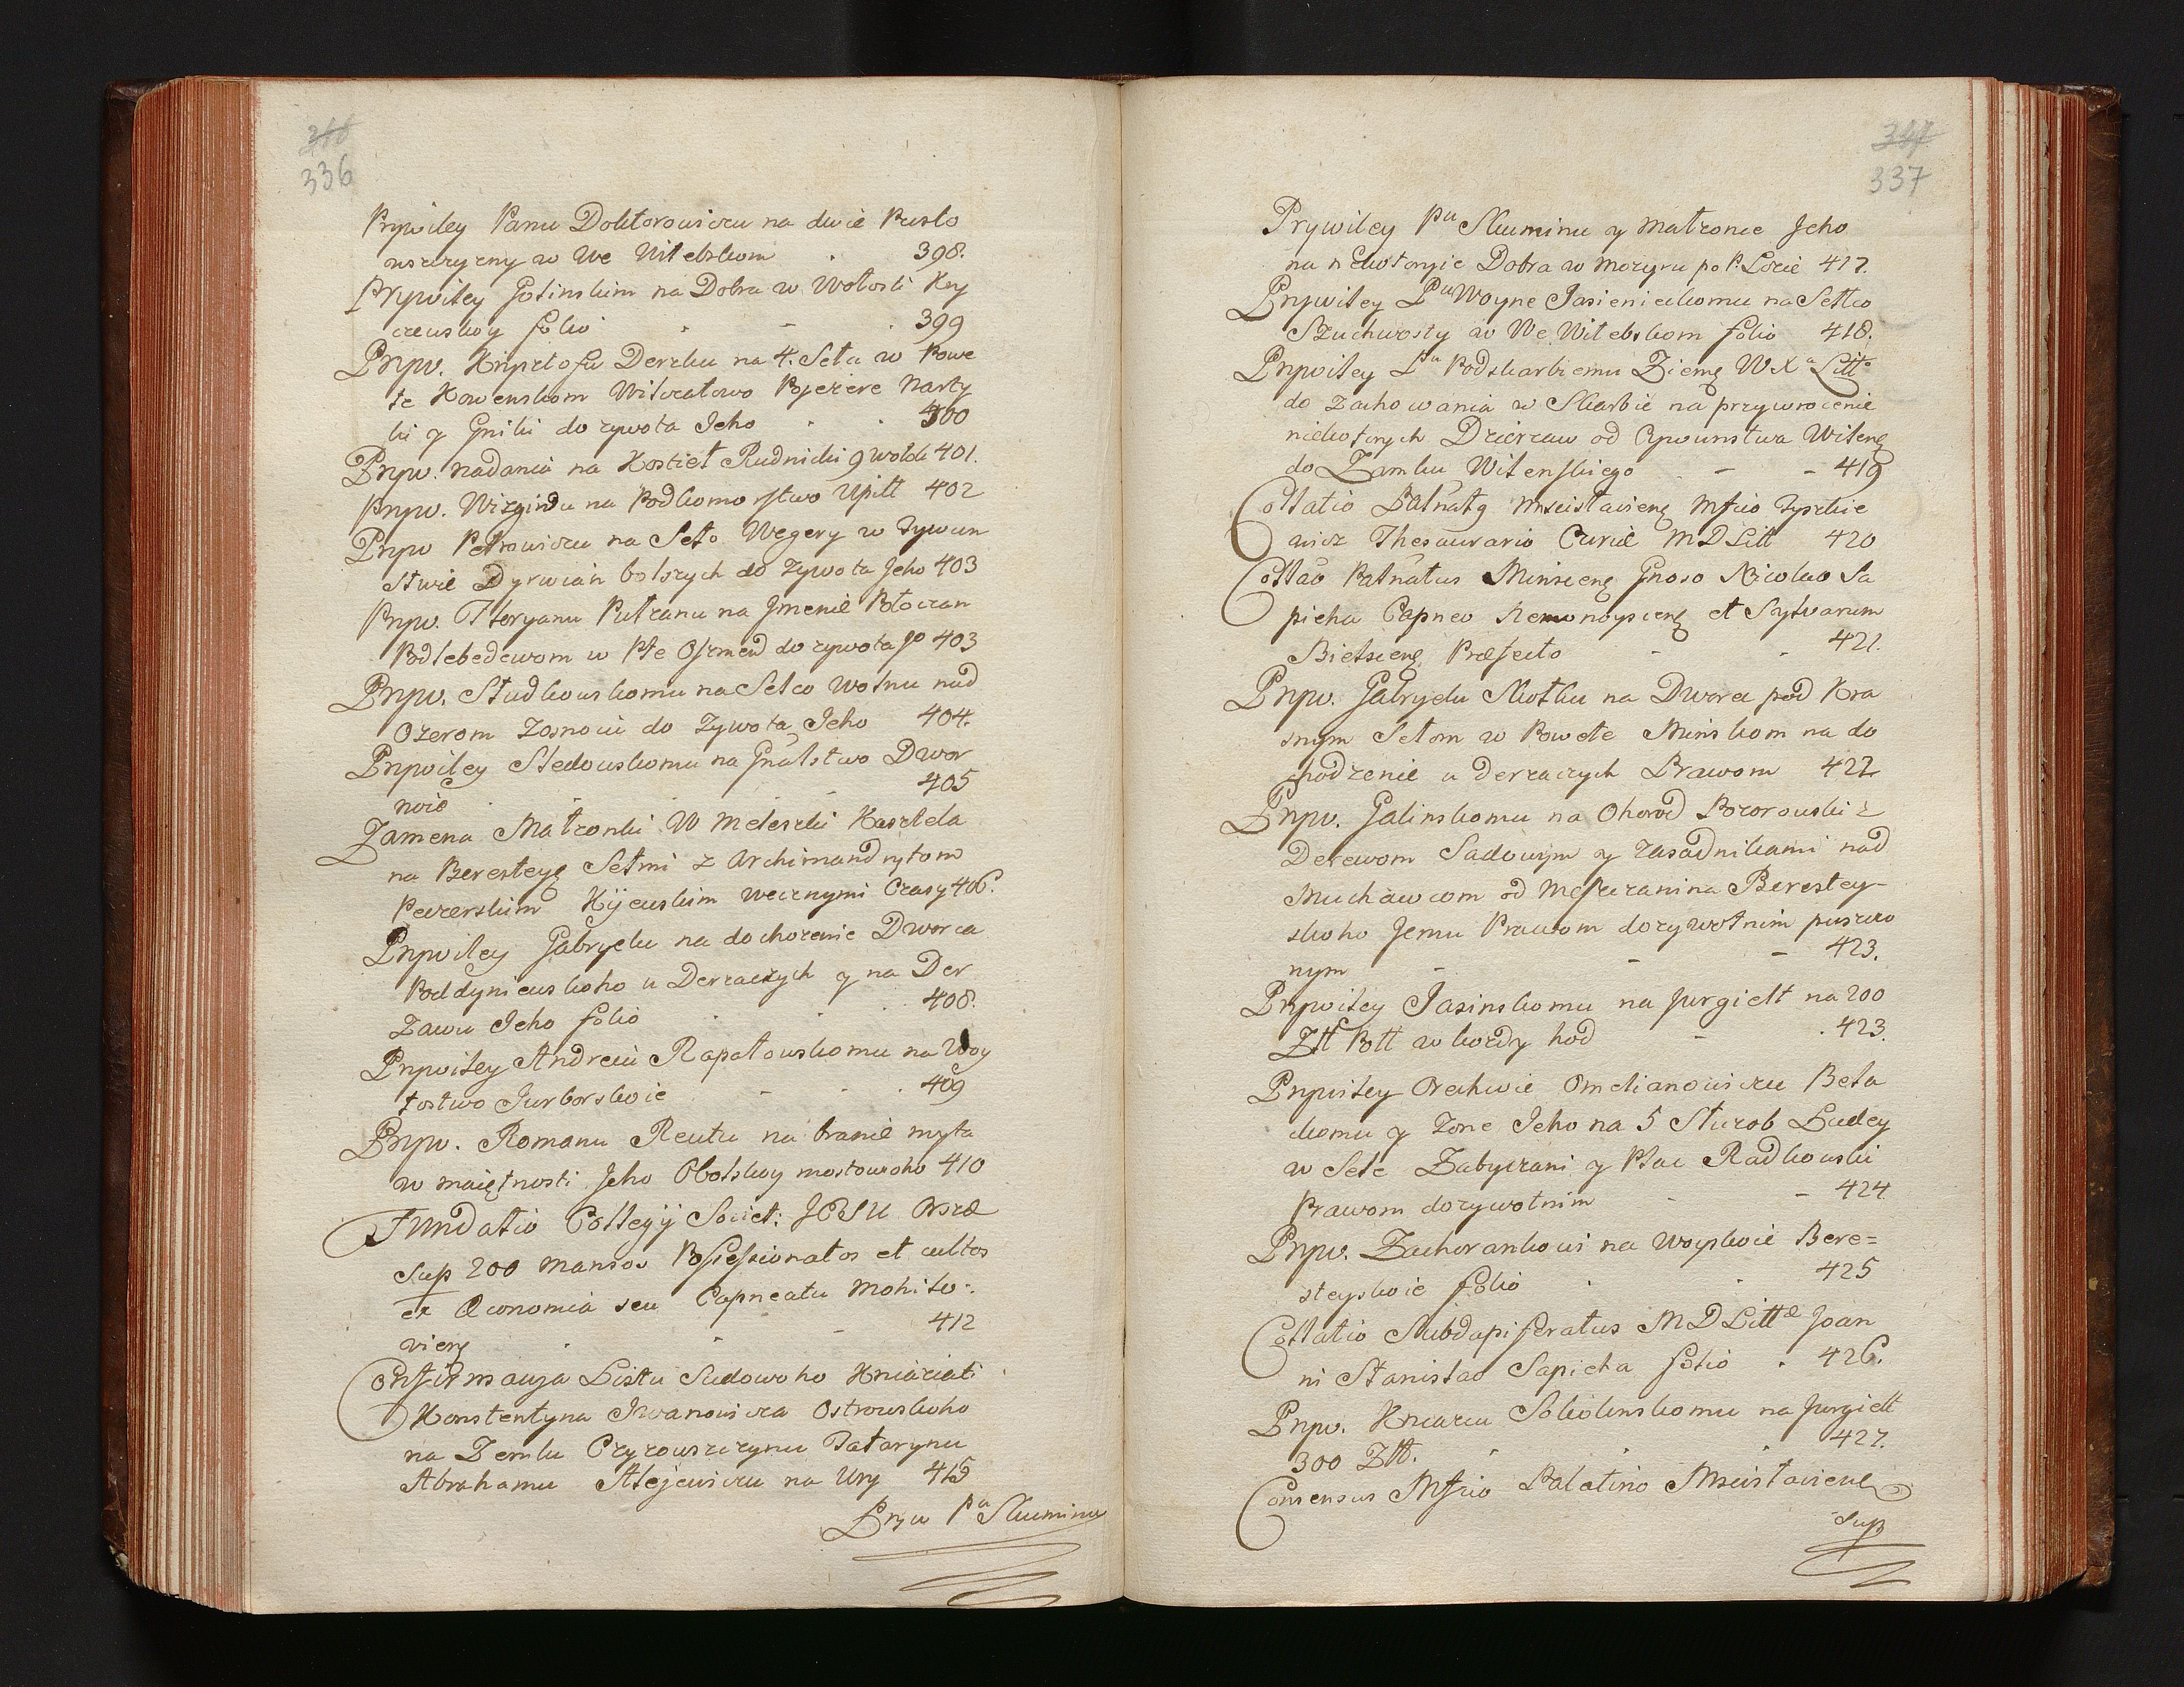 336
Prywiley Panu Doktorowiczu na dwie Pusto
wszczyzny w We Witebskom 398.
Prywiley Golinskim na Dobra w Wołosti Key
czewskoy folio 399
Pryw. Krysztofu Derszku na 4. Seła w Powe
te Kowenskom Witwatowo Pojezere Narty
ki y Gniki do zywota Jeho 400
Pryw. nadania na Kosciet Rudnicki g Wołok 401.
Pryw. Wizgindu na Podkomorstwo Upitt 402
Pryw Petrowiczu na Seło Wegery w Tywun
stwie Dyrwian bolszych do zywota Jeho 403
Pryw. Floryanu Putranu na Jmenie Połoczan
Podlebedewom w Pte Oszmend do zywota Jo 403
Pryw. Studkowskomu na Selco Wołnu nad
Ozerom Zosnoiu do Zywota Jeho 404.
Prywiley Sledowskomu na Gnalstwo Dwor
noie 405
Zamena Małzonki W Meleszki Kasztela
na Beresteyg Sełmi z Archimandrytom
Peczerskim Kijewskim wecznymi Czasy 406.
Prywiley Gabryelu na dochozenie Dworca
Poddyniewskoho u Derzaczych y na Der
zawu Jeho folio 408.
Prywiley Andreiu Rapałowskomu na Woy
tostwo Jurborskoie 409
Pryw. Romanu Reutu na branie myta
w maiętnosti Jeho Obolskoy mostowoho 410
Fundatio Collegij Societ: JESU Orszæ
sup 200 mansos Possessionatos et cultos
ex Œconomia seu Capneatu Mohilo:
vieng 412
Confirmacyja Listu Sudowoho Kniaziati
Konstentyna Jwanowicza Ostrowskoho
na Zemlu Czyzowszczynu Tatarynu
Abrahamu Alejewiczu na Ury 415
Pryw Pu Skuminu
337
Prywiley Pu Skuminu y Małzonce Jeho
na niekotoryie Dobra w Mozyru po P. Lozie 417.
Prywiley Pu Woyne Jasienieckomu na Selco
Szuchwosty w We Witebskom folio 418.
Prywiley Pu Podskarbiemu Ziemg W Xa Litto
do zachowania w Skarbie na przywrocenie
niekotorych Dzierzaw od Cywunstwa Wileng
do Zamku Wilenskiego 419
Collatio Palnatg Mscistavieng Mfico Tyszkie
wicz Thesaurario Curiæ MDLitt 420
Collao Palnatus Minsceng Gnoso Nicolao Sa
pieha Capneo Remonoysceng et Sylvarum
Bielsceng Præfecto 421.
Pryw. Gabryelu Skołku na Dworec pod Kra
snym Sełom w Powete Minskom na do
chodzenie u derzaczych Prawom 422
Pryw. Galinskomu na Ohorod Bozorowski z
Derewom Sadowym y zasadnikami nad
Muchawcom od Mesczanina Berestey-
skoho Jemu Prawom dozywotnim puszczo
nym 423.
Prywiley Jasinskomu na Jurgielt na 200
Ztt Poll w kozdy hod 423.
Prywiley Orechwie Omelianowiczu Beła
ckomu y Zone Jeho na 5 Słuzob Ludey
w Sele Zabyczani y Płac Radkowski
Prawom dozywotnim 424
Pryw. Zachorankowi na Woyskoie Bere=
steyskoie folio 425
Collatio Subdapiferatus MDLittæ Joan
ni Stanislao Sapieha folio 426.
Pryw. Kniaziu Sokolinskomu na Jurgielt
300 Ztt. 427.
Consensus Mfico Palatino Mscistavieng
sup